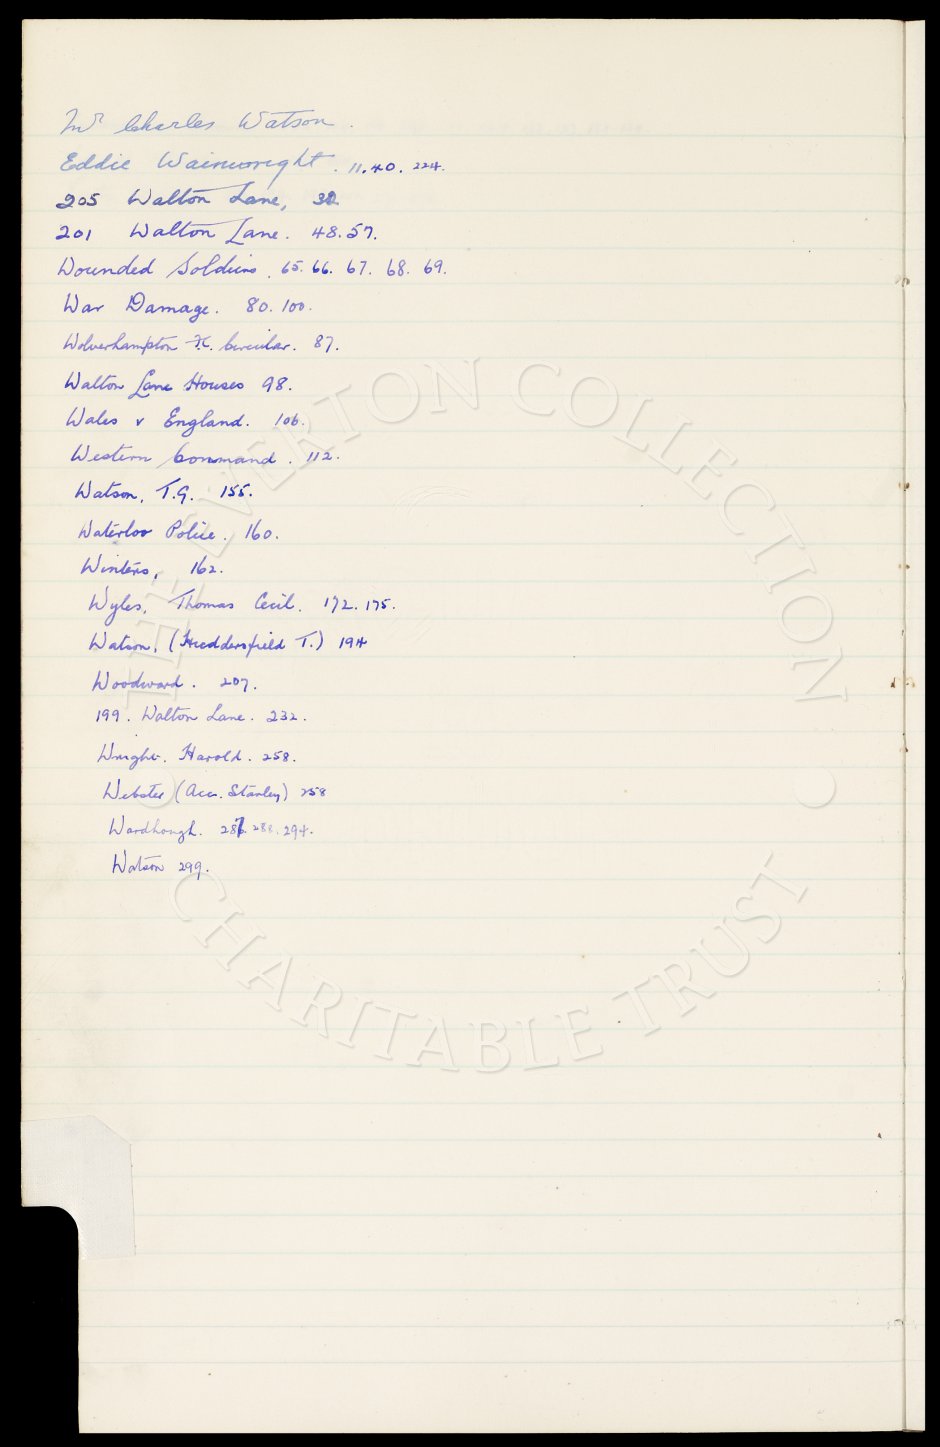 Mr Charles Watson.
Eddie Wainwright. 11. 40. 224.
205 Walton Lane, 32
201 Walton Lane. 48. 57.
Wounded Soldiers. 65. 66. 67. 68. 69.
War Damage. 80. 100.
Wolverhampton F.C. Circular. 87.
Walton Lane Houses 98.
Wales v England. 106.
Western Command. 112.
Watson, T.G. 155.
Waterloo Police. 160.
Winters, 162.
Wyles, Thomas Cecil. 172. 175.
Watson, (Huddersfield T.) 194
Woodward. 207.
199. Walton Lane. 232.
Wright. Harold. 258.
Webster (Acc. Stanley) 258
Wardhough. 287. 288. 294.
Watson 299.
THE EVERTON COLLECTION • CHARITABLE TRUST •